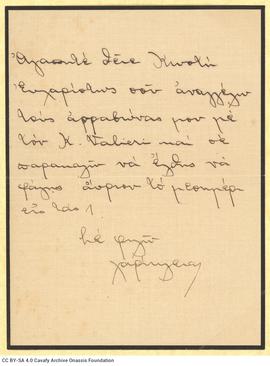 Ἀγαπητέ θεῖε Κωστή
Εὐχαρίστως σοῦ ἀναγγέλω
τούς ἀρραβῶνας μου μέ
τόν Κ. Valieri καί σέ
παρακαλῶ νά ἔλθῃς νά
φάγῃς αὔριον τό μεσημέρι
εἰς τάς 1.
Σέ φιλῶ
Χαρίκλεια
CC BY-SA 4.0 Cavafy Archive Onassis Foundation